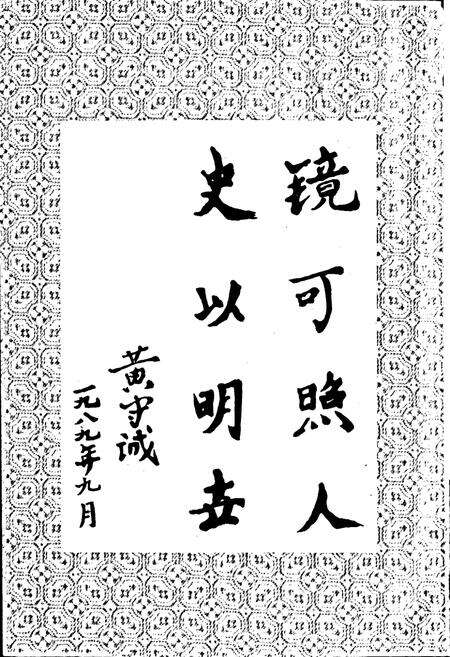 镜可照人
史以明世
黄守诚
一九八九年九月